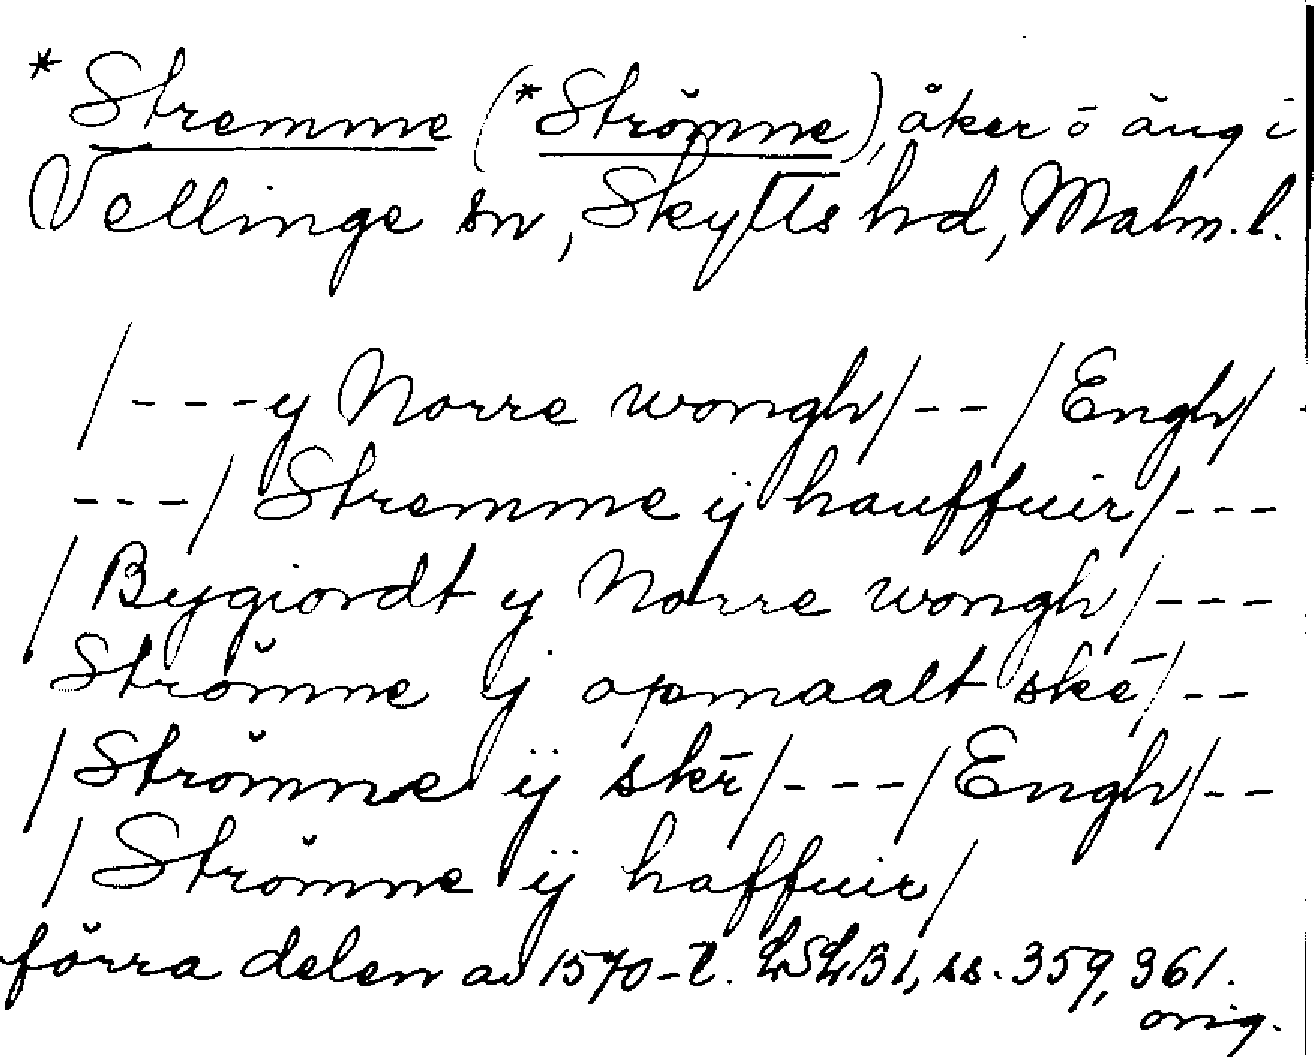 *Stremme (*Strömne), åker o äng i
Vellinge sn, Skytts hd, Malm. l.
/---y Norre wongh/--/Engh/-
---/Stremme ij hauffuir/---
/Bygiordt y Norre wongh/---
Strömne ij opmaalt skē/--
/Strömne ij skē/---/Engh/--
/Strömne ij haffuir/
förra delen av 1570-t. LSLB1, ss. 359, 361.
orig.